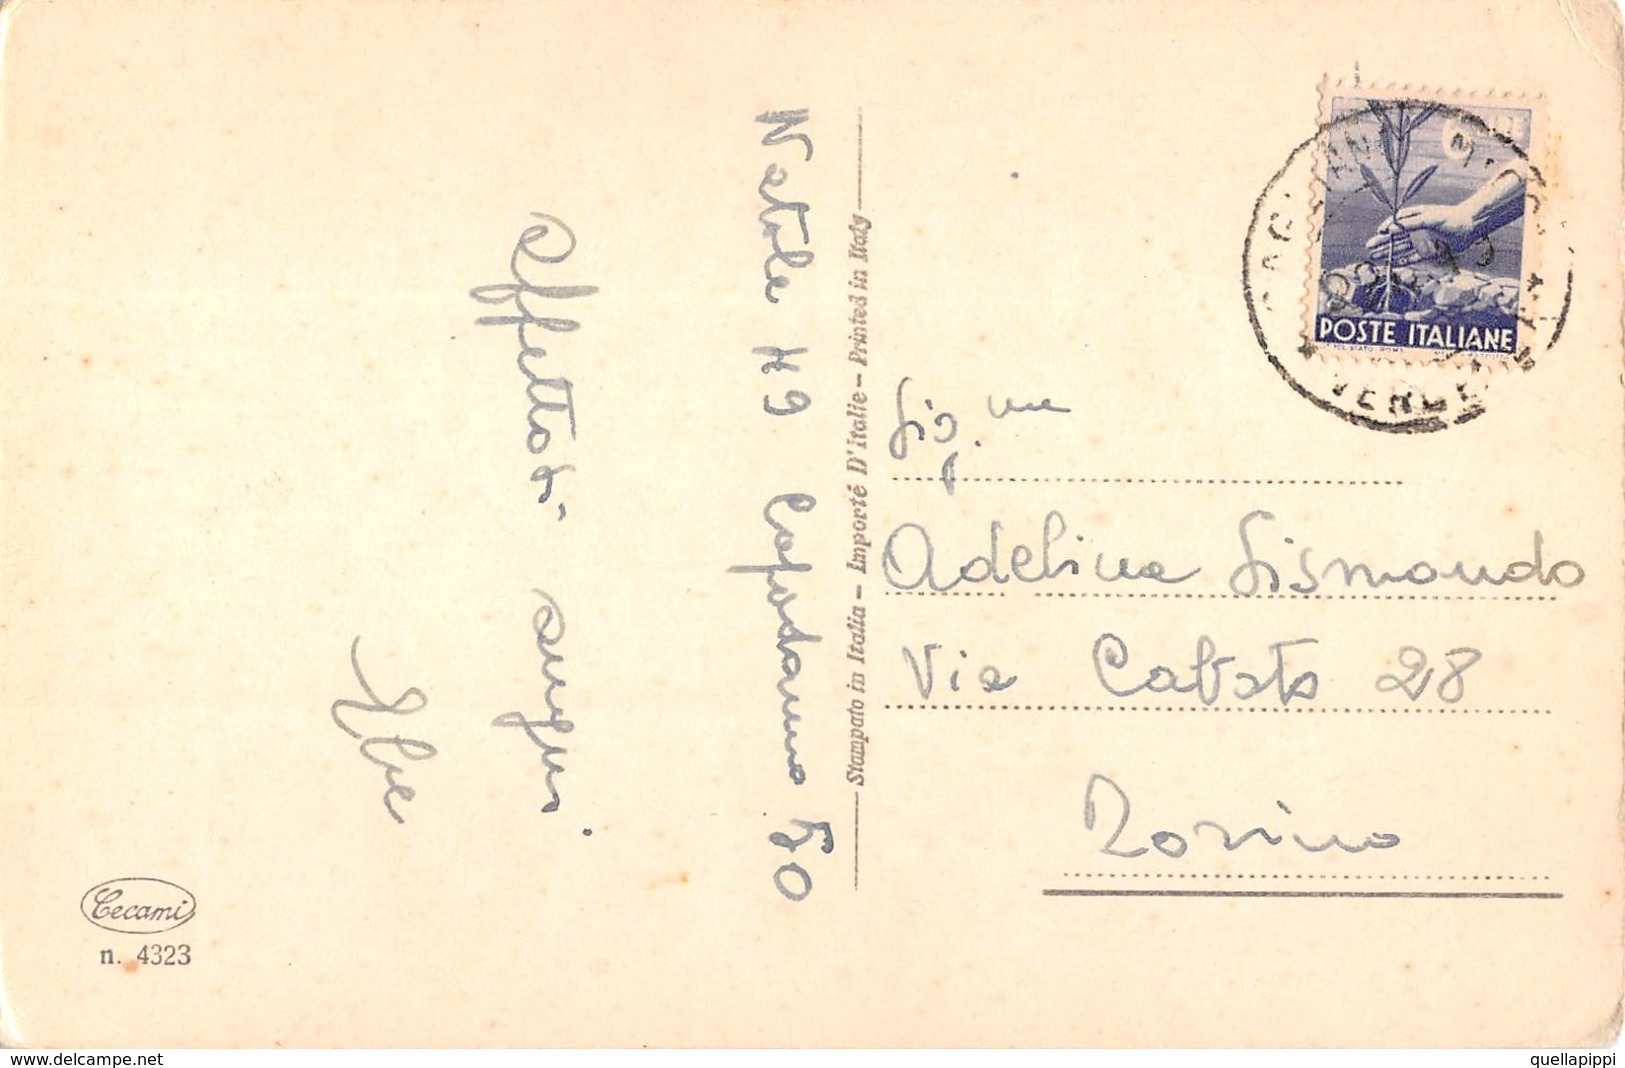 Natale 49 Capodanno 50
Affettuosi auguri
Stampato in Italia - Importé D'Italie - Printed in Italy
Cecami
n. 4323
POSTE ITALIANE
Sig.na
Adelina Sismondo
Torino
www.delcampe.net
quellapippi